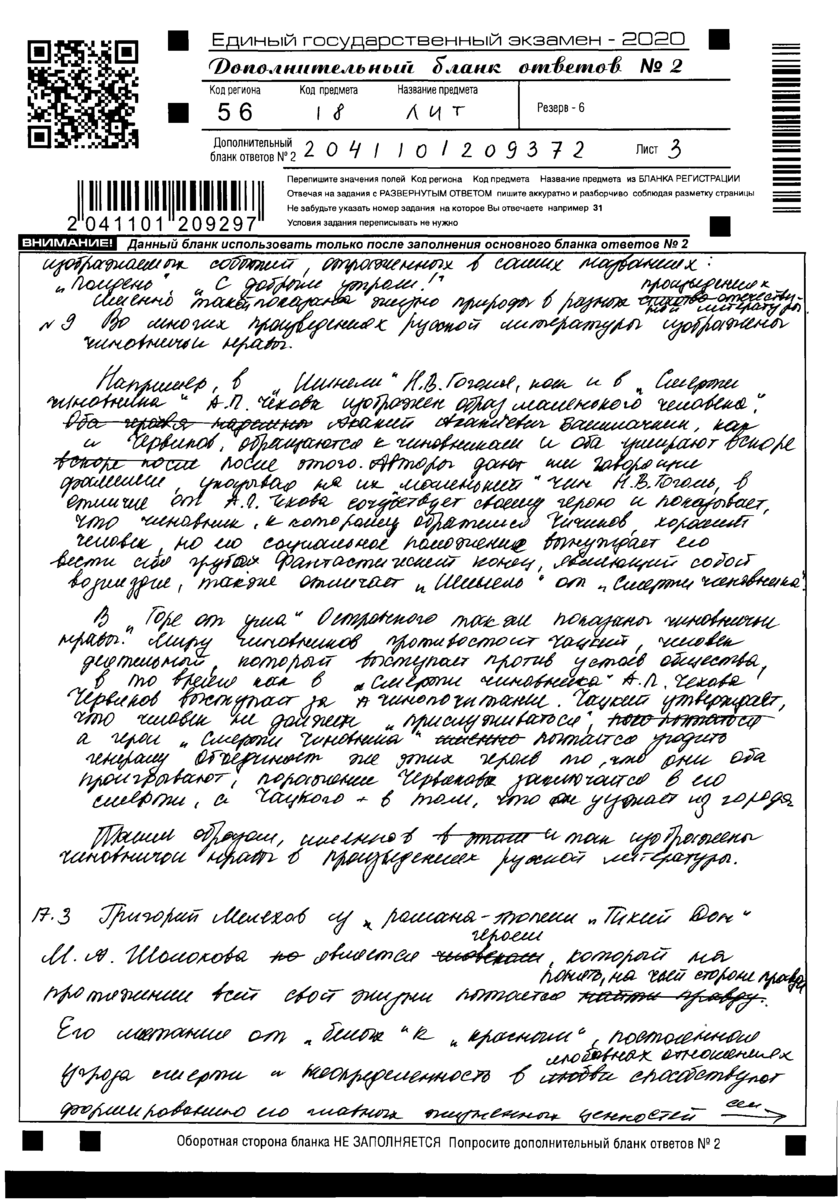 Единый государственный экзамен - 2020
Дополнительный бланк ответов № 2
Код региона Код предмета Название предмета
Резерв - 6
56 18 ЛИТ
Дополнительный бланк ответов № 2 2041101209372 Лист 3
Перепишите значения полей Код региона Код предмета Название предмета из БЛАНКА РЕГИСТРАЦИИ
Отвечая на задания с РАЗВЕРНУТЫМ ОТВЕТОМ пишите аккуратно и разборчиво соблюдая разметку страницы
Не забудьте указать номер задания на которое Вы отвечаете например 31
Условия задания переписывать не нужно
2 041101 209297
ВНИМАНИЕ! Данный бланк использовать только после заполнения основного бланка ответов № 2
изображаемых событий, отраженных в самих названиях:
"Полдень", "С добрым утром!"
Именно так показана жизнь природы в разных произведениях отечественной литературы
№ 9 Во многих произведениях русской литературы изображены
чиновничьи нравы.
Например, в "Шинели" Н.В. Гоголя, как и в "Смерти
чиновника" А.П. Чехова изображен образ маленького человека".
Акакий Акакиевич Башмачкин, как
и Червяков, обращаются к чиновникам и оба умирают вскоре
после этого. Авторы дают им говорящие
фамилии, указывая на их маленький чин Н.В. Гоголь, в
отличие от А.П. Чехова сочувствует своему герою и показывает,
что чиновник, к которому обратился Чичиков, хороший
человек, но его социальное положение вынуждает его
вести себя грубо. Фантастический конец, являющий собой
возмездие, также отличает "Шинель" от "Смерти чиновника".
В "Горе от ума" Островского так же показаны чиновничьи
нравы. Миру чиновников противостоит Чацкий, человек
деятельный, который выступает против устоев общества,
в то время как в "Смерти чиновника" А.П. Чехова
Червяков выступает за чинопочитание. Чацкий утверждает,
что человек не должен "прислуживаться",
а герой "Смерти чиновника" пытается угодить
генералу Объединяет же этих героев то, что они оба
проигрывают, поражение Червякова заключается в его
смерти, а Чацкого - в том, что он уезжает из города
Таким образом, именно так изображены
чиновничьи нравы в произведениях русской литературы.
17.3 Григорий Мелехов из романа-эпопеи "Тихий Дон"
М. А. Шолохова является героем, который на
протяжении всей свой жизни пытается понять, на чьей стороне правда.
Его метание от "белых" к "красным", постоянная
угроза смерти и неопределенность в любовных отношениях способствуют
формированию его главных жизненных ценностей см
Оборотная сторона бланка НЕ ЗАПОЛНЯЕТСЯ Попросите дополнительный бланк ответов № 2